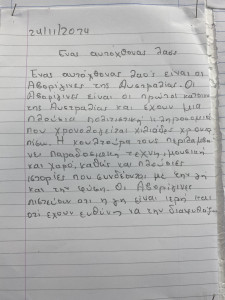 24/11/2024
Ένας αυτόχθονας λαός
Ένας αυτόχθονας λαός είναι οι
Αβορίγινες της Αυστραλίας. Οι
Αβορίγινες είναι οι πρώτοι κάτοικοι
της Αυστραλίας και έχουν μια
πλούσια πολιτιστική κληρονομιά
που χρονολογείται χιλιάδες χρόνια
πίσω. Η κουλτούρα τους περιλαμβά
νει παραδοσιακή τέχνη, μουσική
και χορό, καθώς και πλούσιες
ιστορίες που συνδέονται με την γη
και την φύση. Οι Αβορίγινες
πιστεύουν ότι η γη είναι ιερή και
ότι έχουν ευθύνη να την διαφυλάξουν